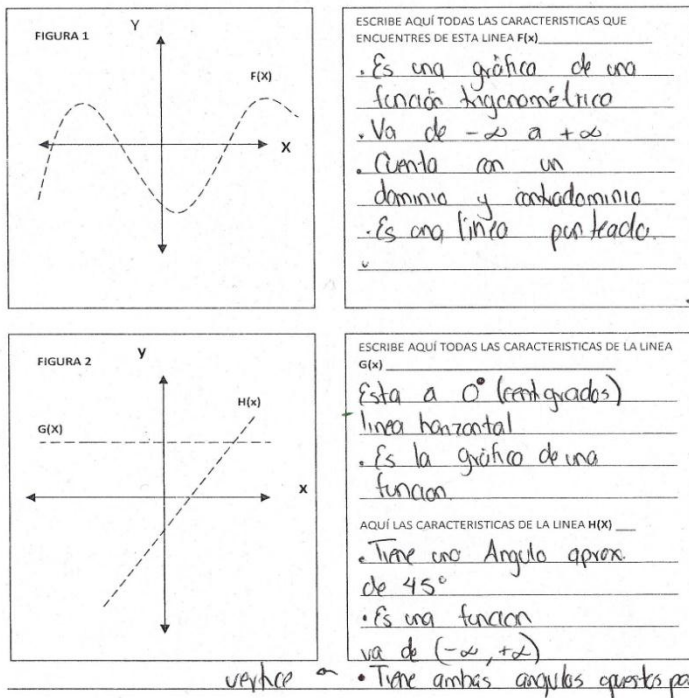 FIGURA 1
Y
F(X)
X
ESCRIBE AQUÍ TODAS LAS CARACTERISTICAS QUE
ENCUENTRES DE ESTA LINEA F(x)
. Es una gráfica de una
función trigonométrica
. Va de -∞ a +∞
. Cuenta con un
dominio y contradominio
. Es una línea punteada.
FIGURA 2
y
H(x)
G(X)
x
ESCRIBE AQUÍ TODAS LAS CARACTERISTICAS DE LA LINEA
G(x)
Esta a 0° (centigrados)
linea horizontal
. Es la gráfica de una
funcion.
AQUÍ LAS CARACTERISTICAS DE LA LINEA H(X)
. Tiene una Angulo aprox.
de 45°
. Es una funcion
va de (-∞, +∞)
. Tiene ambos angulos opuestos por
vertice